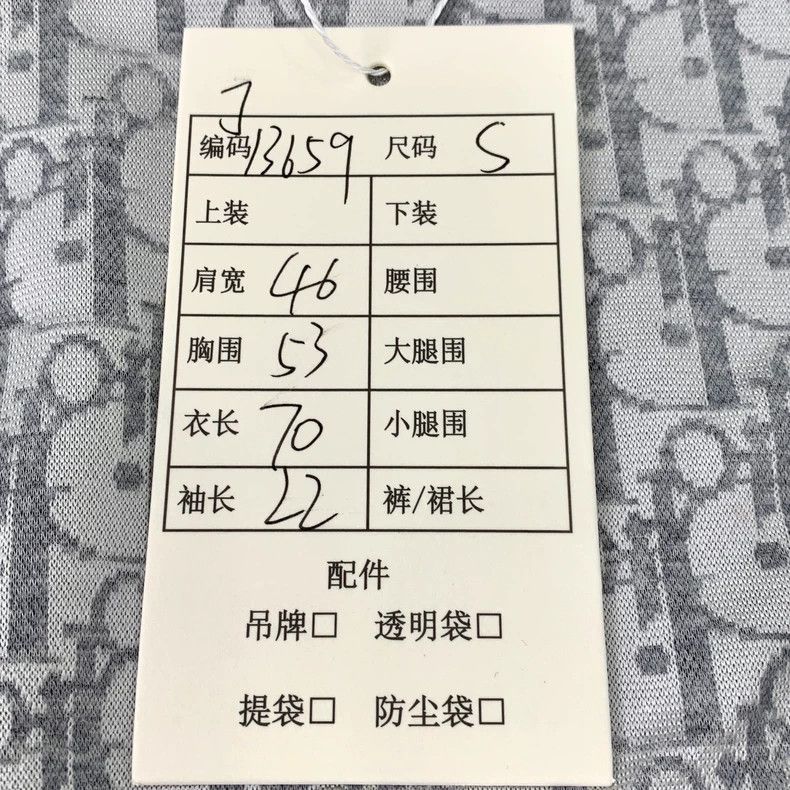 J
编码 13659 尺码 S
上装 下装
肩宽 46 腰围
胸围 53 大腿围
衣长 70 小腿围
袖长 22 裤/裙长
配件
吊牌□ 透明袋□
提袋□ 防尘袋□